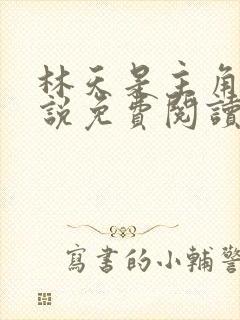 林天是主角
說免費閱讀
寫書的小輔警